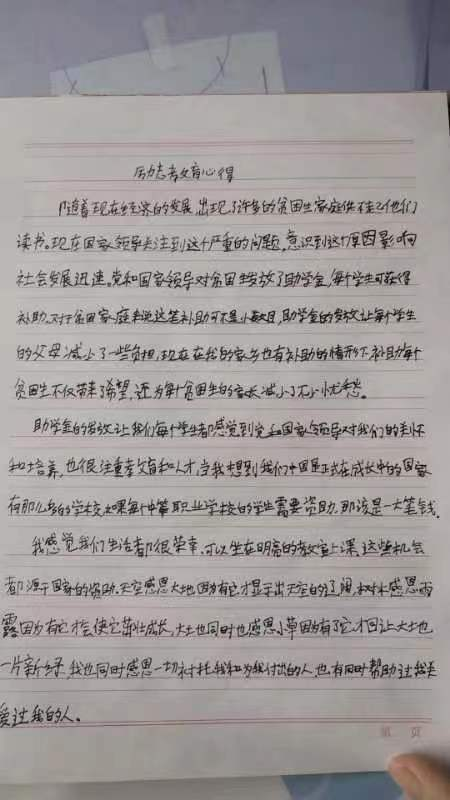 励志教育心得
随着现在经济的发展,出现了许多的贫困生家庭供不起他们
读书。现在国家领导关注到这个严重的问题,意识到这个原因影响
社会发展迅速。党和国家领导对贫困生发放了助学金,每个学生可获得
补助。对于贫困家庭来说这笔补助可不是小数目,助学金的发放让每个学生
的父母减少了一些负担,现在在我的家乡也有补助的情形下,补助每个
贫困生不仅带来了希望,还为每个贫困生的家长减小了不小忧愁。
助学金的发放让我们每个学生都感觉到党和国家领导对我们的关怀
和培养,也很注重教育和人才,当我想到我们中国是正在成长中的国家
有那么多的学校,如果每个中等职业学校的学生需要资助,那该是一大笔钱。
我感觉我们生活都很荣幸,可以坐在明亮的教室上课,这些机会
都源于国家的资助。天空感恩大地因为有它才显示出天空的辽阔,树木感恩雨
露因为有它才会使它茁壮成长,大土也同时也感恩小草因为有了它才回让大土也
一片新绿,我也同时感恩一切衬托我和为我付出的人,也有同时帮助过我关
爱过我的人。
第 页